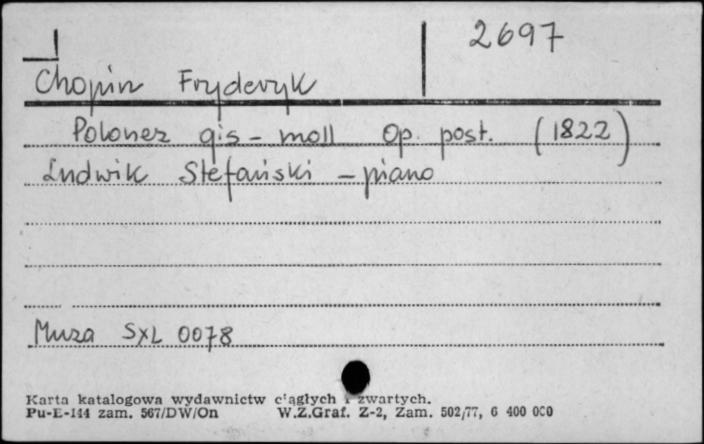 2697
Chopin Fryderyk
Polonez gis-moll Op. post. (1822)
Ludwik Stefański - piano
Muza SXL 0078
Karta katalogowa wydawnictw ciągłych i zwartych.
Pu-E-144 zam. 567/DW/On W.Z.Graf. Z-2, Zam. 502/77, 6 400 000